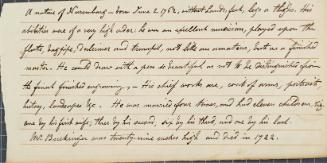 A native of Nuremburg – born June 2 1674, without hands, feet, legs or thighs. His
abilities were of a very high order: he was an excellent musician, played upon the
flute, bagpipe, dulcimer and trumpet, not like an amateur, but as a finished
master. He could draw with a pen so beautiful as not to be distinguished from
the finest finished engraving, – His chief works are, coats of arms, portraits,
history, landscapes &c. He was married four times, and had eleven children, viz
one by his first wife, three by his second, six by his third, and one by his last.
Mr Buckinger was twenty-nine inches high and died in 1722.